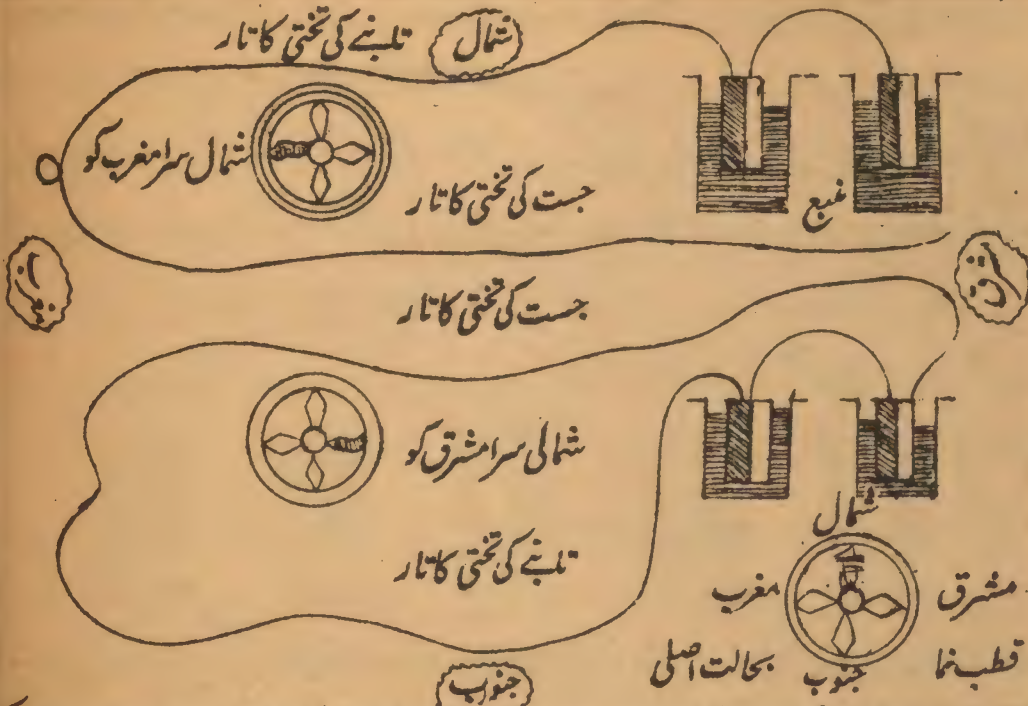 شمال
تانبے کی تختی کا تار
شمال سرا مغرب کو
جست کی تختی کا تار
منبع
جست کی تختی کا تار
شمالی سرا مشرق کو
تانبے کی تختی کا تار
شمال
مشرق
مغرب
قطب نما
جنوب
بحالت اصلی
جنوب